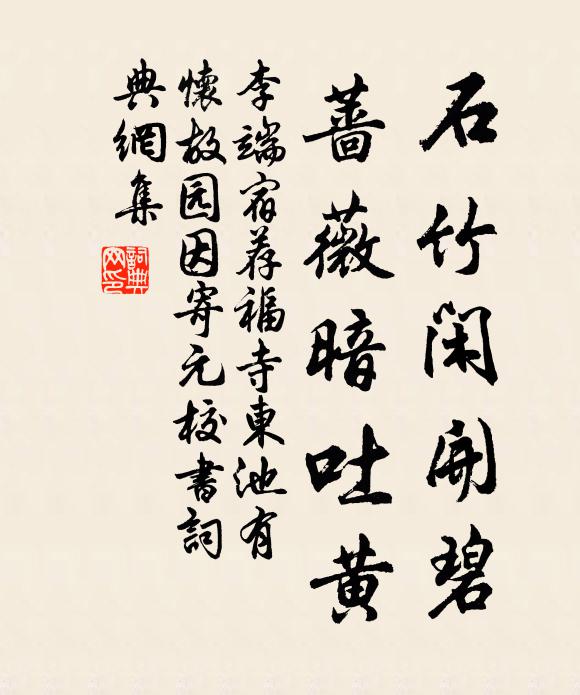 石竹闲开碧
蔷薇暗吐黄
李端宿荐福寺東池有
懷故园因寄元校書詞
典網集
詞典
网印